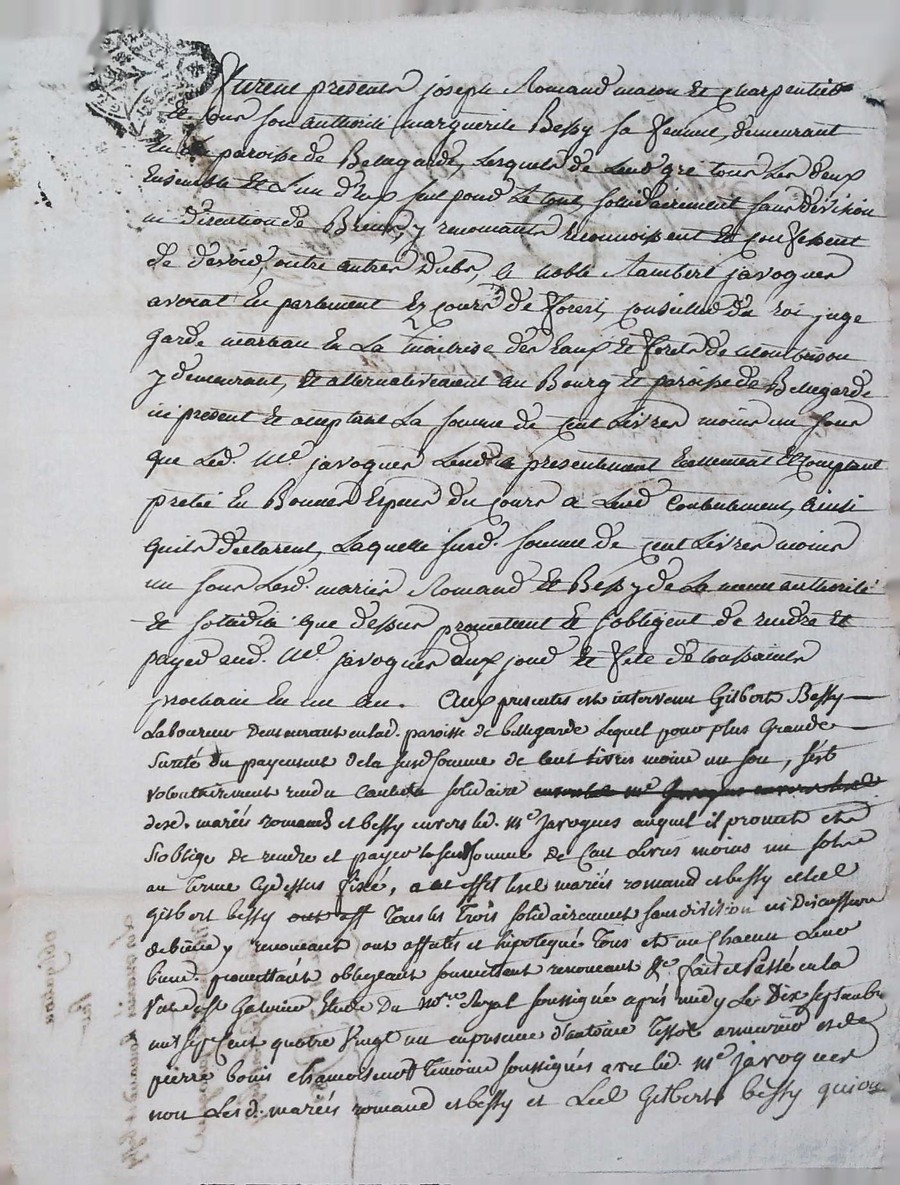 Furent presents joseph Romand masson et charpentier
de sous son authorité marguerite Bessy sa femme, demeurant
en la paroisse de Bellegarde, lesquels de leur gré tous les deux
ensemble et l'un d'eux seul pour le tout solidairement sans division
ni discution de Biens, y renoncants reconnoissent et confessent
de devoir, outre autres dubs, a noble Rambert javogues
avocat en parlement es cours de forest, conseiller du roi juge
garde marteau en la maitrise des eaux et forets de Montbrison
y demeurant, et alternativement au Bourg et paroisse de Bellegarde
ici present et acceptant la somme de cent livres moins un sous
que led. Me. javogues leur a presentement reellement et comptant
preté en Bonnes Especes du cours a leur contentement, ainsi
quils declarent, laquelle susd. somme de cent livres moins
un sous lesd. mariés Romand et Bessy de la meme authorité
et solidité que dessus promettent et sobligent de rendre et
payer aud. Me. javogues aux jour et fete de toussaints
prochain en un an. Aux presentes est intervenu Gilbert Bessy
Laboureur demeurant en lad. paroisse de bellegarde lequel pour plus grande
sureté du payement de la susd somme de cent livres moins un sou, s'est
volontairement rendu caution solidaire
desd. mariés romand et bessy envers led. Me javogues auquel il promet et
s'oblige de rendre et payer la susd somme de cent livres moins un sol
au terme cydessus fixé, a cet effet lesd mariés romand et bessy et led
gilbert bessy tous les trois solidairement sans division ni discussion
de biens y renonceant ont affectés et hipotequé tous et un chacun leurs
biens. promettants obligeant soumettant renonceant &c. fait et passé en la
ville de st Galmier Etude du nore. Royal soussigné aprés midy le Dix septembre
mil sept cent quatre vingt un en presence d'antoine Tissot armurier et de
pierre bouis chamoiseur temoins soussignés avec led. Me javogues
non lesd. mariés romand et bessy et led Gilbert bessy qui ont
obligation